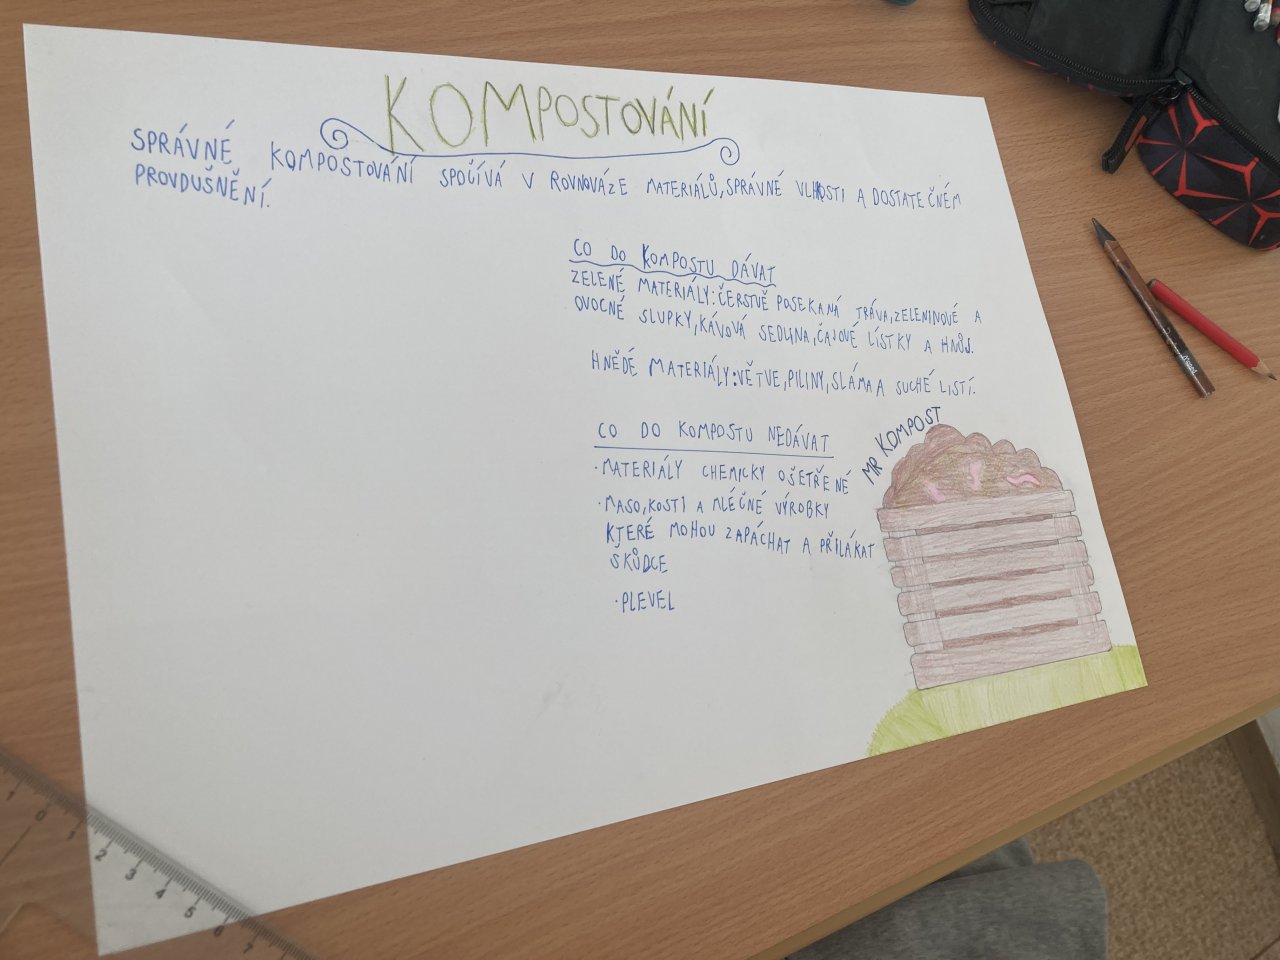 KOMPOSTOVÁNÍ
SPRÁVNÉ KOMPOSTOVÁNÍ SPOČÍVÁ V ROVNOVÁZE MATERIÁLŮ, SPRÁVNÉ VLHOSTI A DOSTATEČNÉM
PROVDUŠNĚNÍ.
CO DO KOMPOSTU DÁVAT
ZELENÉ MATERIÁLY: ČERSTVĚ POSEKANÁ TRÁVA, ZELENINOVÉ A
OVOCNÉ SLUPKY, KÁVOVÁ SEDLINA, ČAJOVÉ LÍSTKY A HNŮJ.
HNĚDÉ MATERIÁLY: VĚTVE, PILINY, SLÁMA A SUCHÉ LISTÍ.
CO DO KOMPOSTU NEDÁVAT
· MATERIÁLY CHEMICKY OŠETŘENÉ
· MASO, KOSTI A MLÉČNÉ VÝROBKY
KTERÉ MOHOU ZAPÁCHAT A PŘILÁKAT
ŠKŮDCE
· PLEVEL
MR KOMPOST
0 1 2 3 4 5 6 7